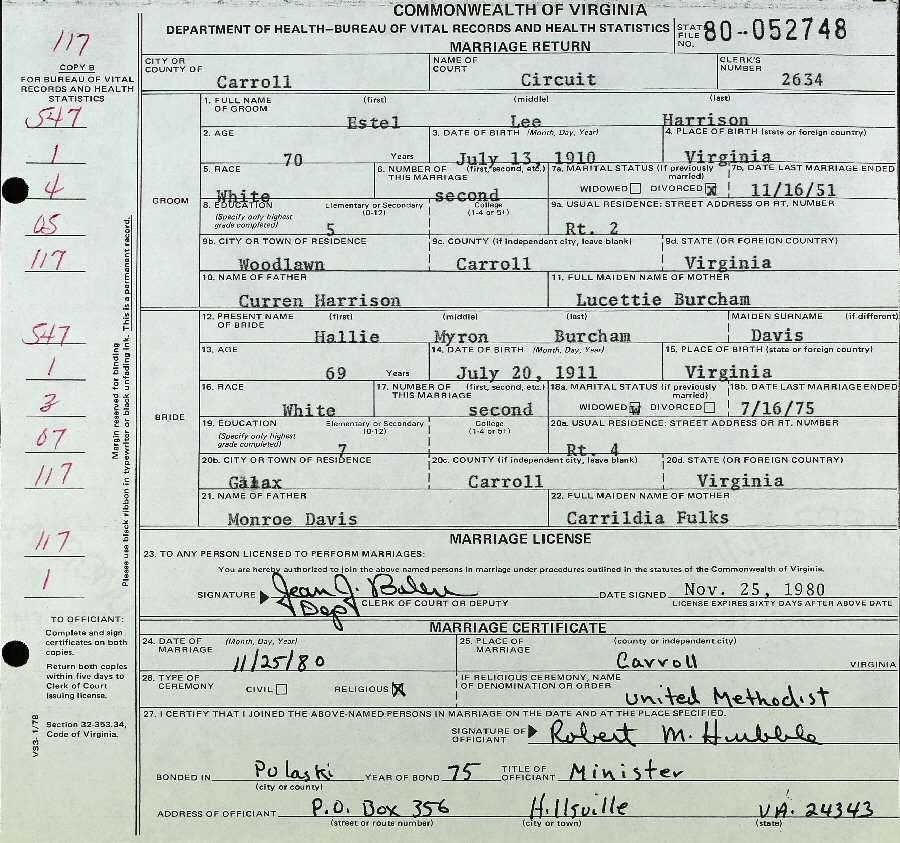 COMMONWEALTH OF VIRGINIA
DEPARTMENT OF HEALTH—BUREAU OF VITAL RECORDS AND HEALTH STATISTICS
MARRIAGE RETURN
STATE FILE NO. 80-052748
117
COPY B
FOR BUREAU OF VITAL
RECORDS AND HEALTH
STATISTICS
CITY OR COUNTY OF Carroll NAME OF COURT Circuit CLERK'S NUMBER 2634
547
1
4
05
117
GROOM
1. FULL NAME OF GROOM (first) (middle) (last)
Estel Lee Harrison
2. AGE 70 Years 3. DATE OF BIRTH (Month, Day, Year) July 13, 1910 4. PLACE OF BIRTH (state or foreign country) Virginia
5. RACE White 6. NUMBER OF THIS MARRIAGE (first, second, etc.) second 7a. MARITAL STATUS (If previously married) WIDOWED DIVORCED X 7b. DATE LAST MARRIAGE ENDED 11/16/51
8. EDUCATION (Specify only highest grade completed) Elementary or Secondary (0-12) 5 College (1-4 or 5+) 9a. USUAL RESIDENCE: STREET ADDRESS OR RT. NUMBER Rt. 2
9b. CITY OR TOWN OF RESIDENCE Woodlawn 9c. COUNTY (if independent city, leave blank) Carroll 9d. STATE (OR FOREIGN COUNTRY) Virginia
10. NAME OF FATHER Curren Harrison 11. FULL MAIDEN NAME OF MOTHER Lucettie Burcham
547
1
3
07
117
BRIDE
12. PRESENT NAME OF BRIDE (first) (middle) (last) MAIDEN SURNAME (if different)
Hallie Myron Burcham Davis
13. AGE 69 Years 14. DATE OF BIRTH (Month, Day, Year) July 20, 1911 15. PLACE OF BIRTH (state or foreign country) Virginia
16. RACE White 17. NUMBER OF THIS MARRIAGE (first, second, etc.) second 18a. MARITAL STATUS (If previously married) WIDOWED X DIVORCED 18b. DATE LAST MARRIAGE ENDED 7/16/75
19. EDUCATION (Specify only highest grade completed) Elementary or Secondary (0-12) 7 College (1-4 or 5+) 20a. USUAL RESIDENCE: STREET ADDRESS OR RT. NUMBER Rt. 4
20b. CITY OR TOWN OF RESIDENCE Galax 20c. COUNTY (if independent city, leave blank) Carroll 20d. STATE (OR FOREIGN COUNTRY) Virginia
21. NAME OF FATHER Monroe Davis 22. FULL MAIDEN NAME OF MOTHER Carrildia Fulks
Margin reserved for binding
Please use black ribbon in typewriter or black unfading ink. This is a permanent record.
117
1
MARRIAGE LICENSE
23. TO ANY PERSON LICENSED TO PERFORM MARRIAGES:
You are hereby authorized to join the above named persons in marriage under procedures outlined in the statutes of the Commonwealth of Virginia.
SIGNATURE Jean J. Dep CLERK OF COURT OR DEPUTY DATE SIGNED Nov. 25, 1980
LICENSE EXPIRES SIXTY DAYS AFTER ABOVE DATE
TO OFFICIANT:
Complete and sign
certificates on both
copies.
Return both copies
within five days to
Clerk of Court
issuing license.
Section 32-353.34,
Code of Virginia.
VS3- 1/78
MARRIAGE CERTIFICATE
24. DATE OF MARRIAGE (Month, Day, Year) 11/25/80 25. PLACE OF MARRIAGE (county or independent city) Carroll VIRGINIA
26. TYPE OF CEREMONY CIVIL RELIGIOUS X IF RELIGIOUS CEREMONY, NAME OF DENOMINATION OR ORDER United Methodist
27. I CERTIFY THAT I JOINED THE ABOVE-NAMED PERSONS IN MARRIAGE ON THE DATE AND AT THE PLACE SPECIFIED.
SIGNATURE OF OFFICIANT Robert M. Hubble
BONDED IN Pulaski (city or county) YEAR OF BOND 75 TITLE OF OFFICIANT Minister
ADDRESS OF OFFICIANT P.O. Box 356 Hillsville VA. 24343
(street or route number) (city or town) (state)